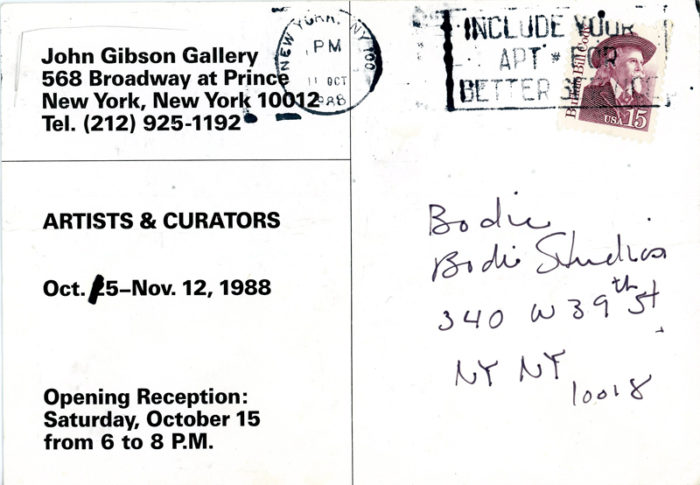 John Gibson Gallery
568 Broadway at Prince
New York, New York 10012
Tel. (212) 925-1192
ARTISTS & CURATORS
Oct. 15–Nov. 12, 1988
Opening Reception:
Saturday, October 15
from 6 to 8 P.M.
NEW YORK, NY 100
PM
11 OCT
1988
INCLUDE YOUR
APT # FOR
BETTER
Buffalo Bill Cody
USA 15
Bodie
Bodie Studios
340 W 39th St
NY NY
10018